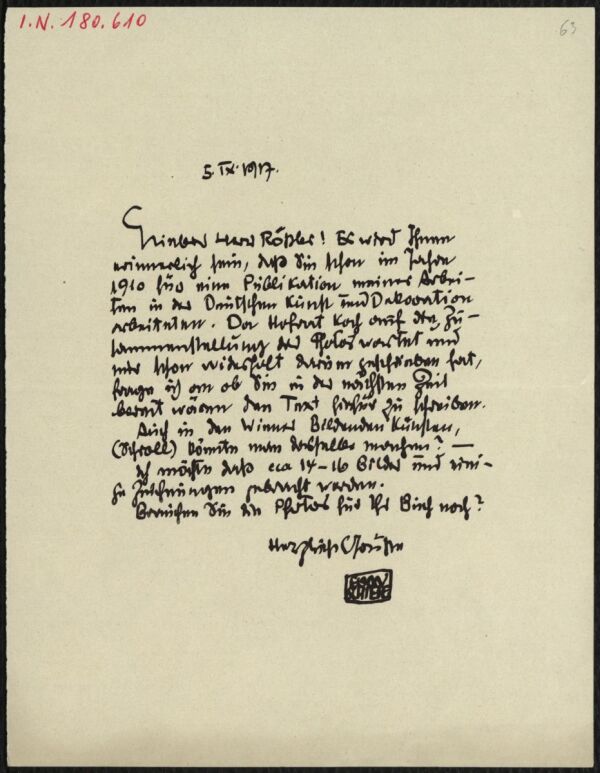 I.N. 180.610
63
5. IX. 1917.
Lieber Herr Rößler! Es wird Ihnen
erinnerlich sein, daß Sie schon im Jahre
1910 für eine Publikation meiner Arbei-
ten in der Deutschen Kunst und Dekoration
arbeiteten. Da Hofrat Koch auf die Zu-
sammenstellung der Photos wartet und
mir schon widerholt darum geschrieben hat,
frage ich an ob Sie in der nächsten Zeit
bereit wären den Text hiefür zu schreiben.
Auch in den Wiener Bildenden Künsten,
(Schroll) könnte man dasselbe machen? —
Ich möchte daß cca 14–16 Bilder und eini-
ge Zeichnungen gebracht werden.
Brauchen Sie die Photos für Ihr Buch noch?
Herzlichst Grüße
EGON
SCHIELE